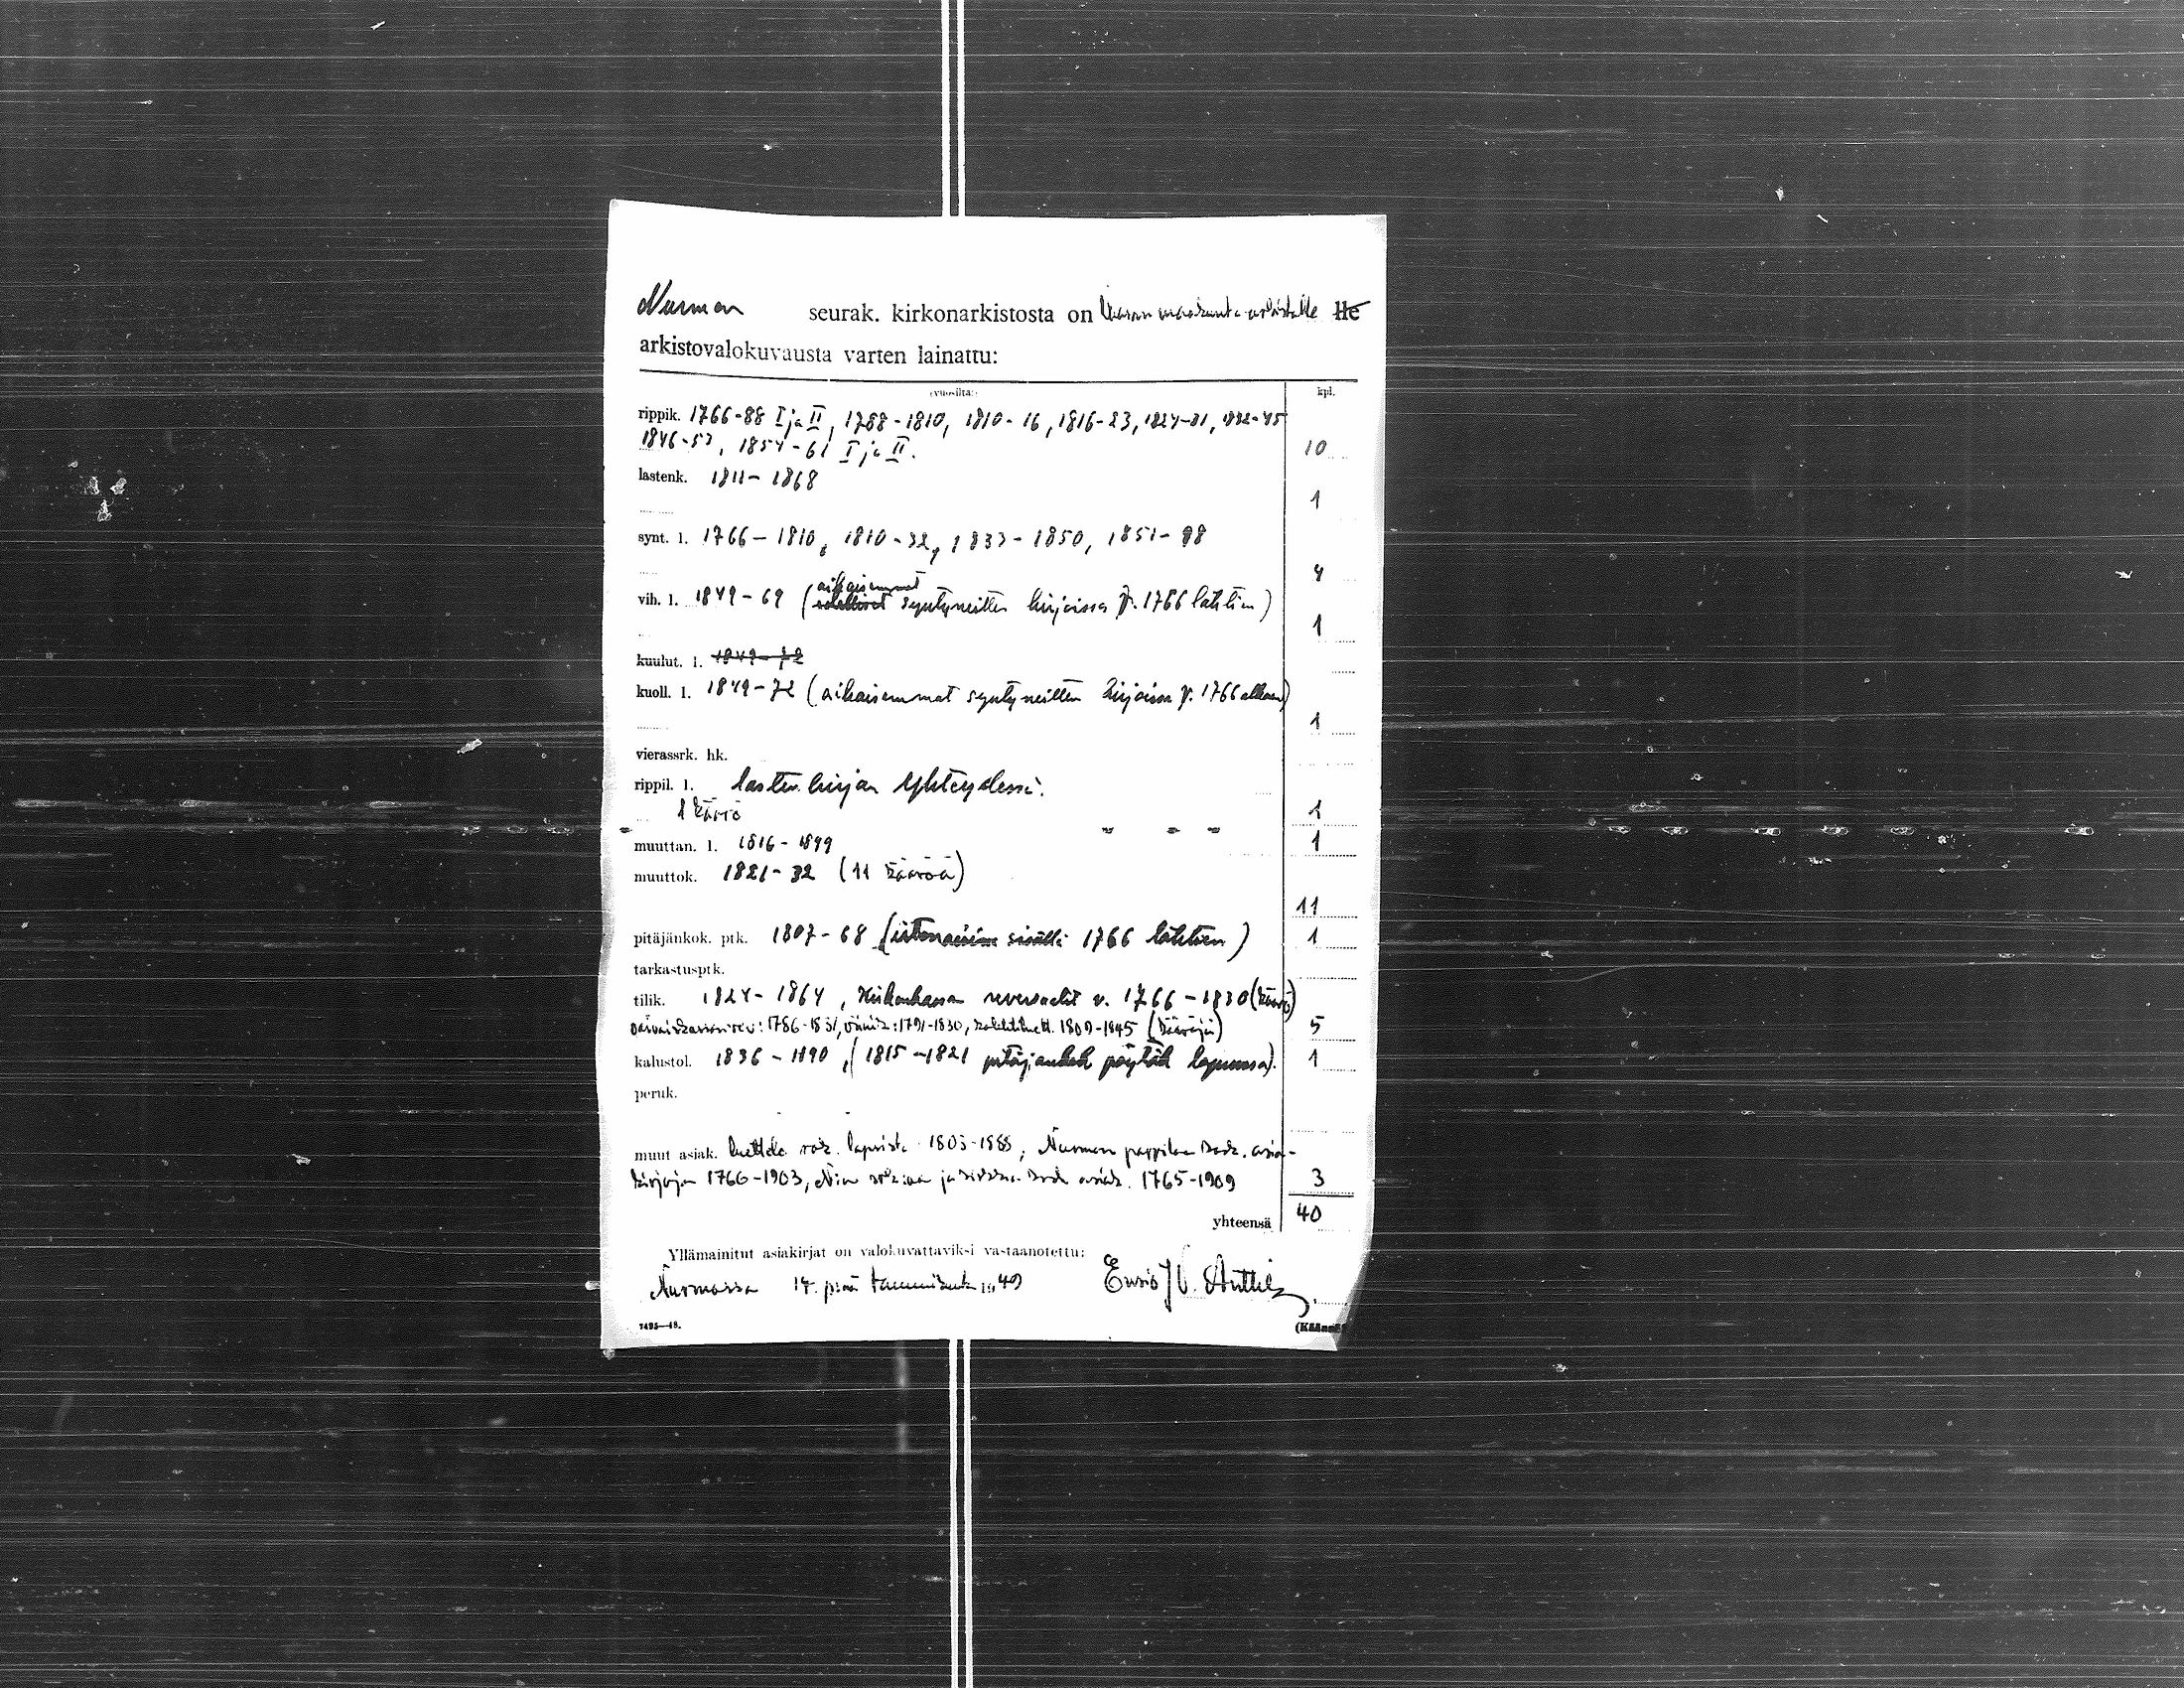 Nurmon seurak. kirkonarkistosta on Vaasan maakunta-arkistolle He
arkistovalokuvausta varten lainattu:
(vuosilta:) kpl.
rippik. 1766-88 I ja II, 1788-1810, 1810-16, 1816-23, 1824-31, 1832-45
1846-53, 1854-61 I ja II. 10
lastenk. 1811-1868
1
synt. l. 1766-1810, 1810-32, 1833-1850, 1851-98
4
vih. l. 1849-69 (aikaisemmat syntyneitten kirjoissa v. 1766 lähtien)
1
kuulut. l. 1849-72
kuoll. l. 1849-72 (aikaisemmat syntyneitten kirjoissa v. 1766 alkaen)
1
vierassrk. hk.
rippil. l. lastenkirjan yhteydessä.
1 käärö 1
muuttan. l. 1816-1899 1
muuttok. 1821-32 (11 kääröä)
11
pitäjänkok. ptk. 1807-68 (irtonaisina sisällä 1766 lähtien) 1
tarkastusptk.
tilik. 1824-1864, Kirkonkassan reversaalit v. 1766-1830 (käärö)
1786-1831, 1791-1830, 1809-1845 (kääröjä) 5
kalustol. 1836-1890, (1815-1821 pitäjänkok pöytäk lopussa). 1
peruk.
muut asiak. luettelo rok. lapsista 1803-1888, Nurmon pappilan rak. asia-
kirjoja 1766-1903, 1765-1909 3
yhteensä 40
Yllämainitut asiakirjat on valokuvattaviksi vastaanotettu:
Nurmossa 14. p:nä tammikuuta 1949 Ensio V. Anttila
7495—48. (Käännä!